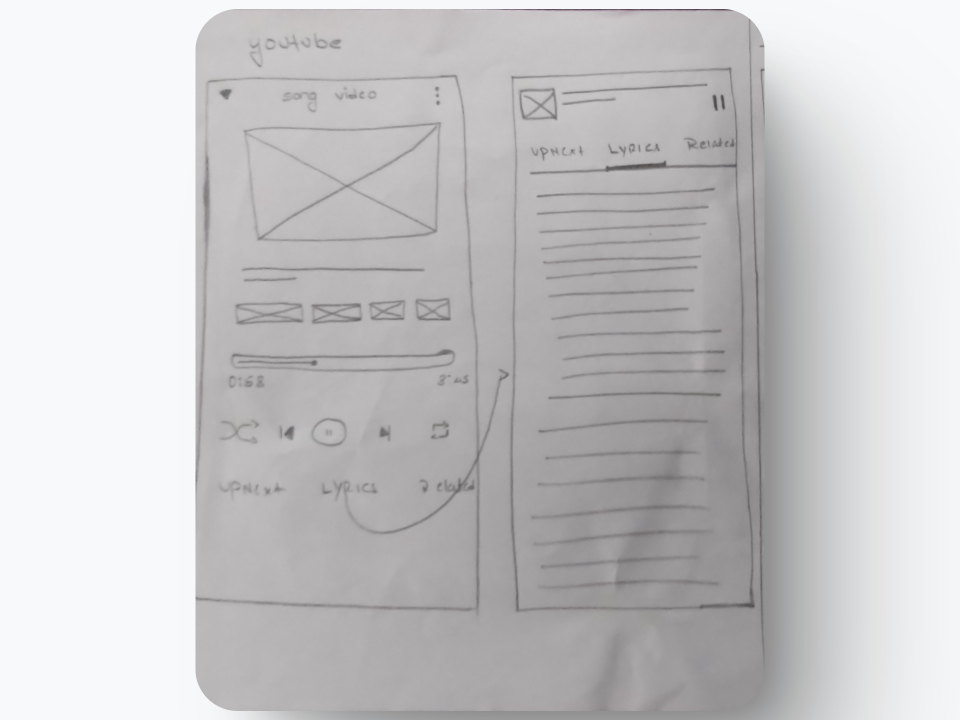 youtube
song video
0:68
UPNext LYRICS Related
UPNext LYRICS Related